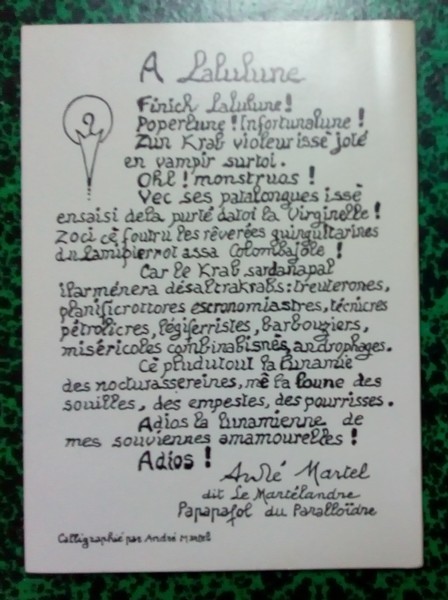 A Lalulune
Finich Lalulune !
Poperlune ! Infortunalune !
Zun Krab violeurissè joté
en vampir surtoi.
Ohl ! monstruos !
Vec ses patalongues issè
ensaisi dela purté datoi la Virginelle !
Zoci cè foutru les rêverées guingultarines
du Lamipierrot assa Colombajole !
Car le Krab sardanapal
ilarménera désaltrakrabs : treuterones,
planificrottores escronomiastres, técnicres
pétrolicres, légiferristes, barbouziers,
miséricoles combinabisnes, androphages.
Cè pludutout la lunamie
des nocturassereines, mê la loune des
souilles, des empestes, des pourrisses.
Adios la lunamienne de
mes souviennes amamourelles !
Adios !
André Martel
dit Le Martélandre
Papapafol du Paralloïdre
Calligraphié par André Martel